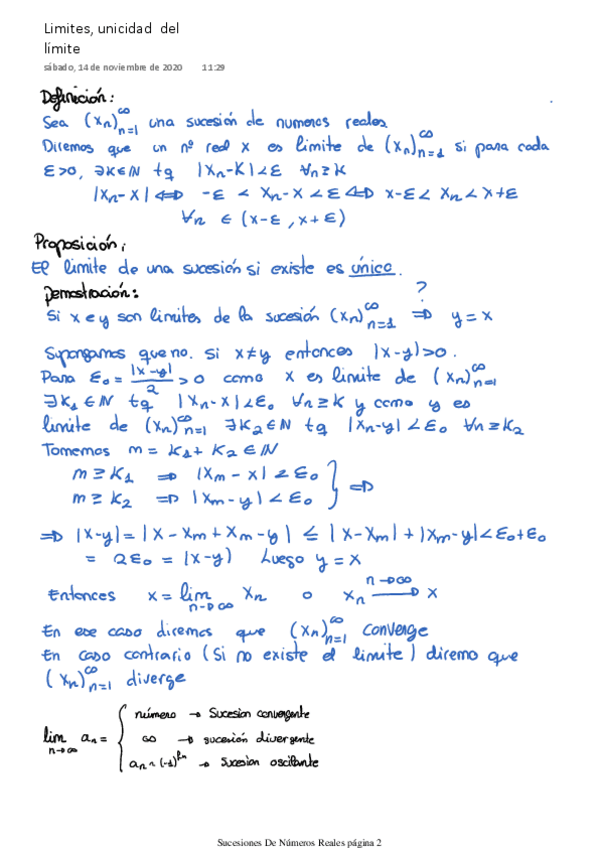 Limites, unicidad del
límite
sábado, 14 de noviembre de 2020 11:29
Definición:
Sea (xn)∞n=1 una sucesión de numeros reales
Diremos que un nº real x es limite de (xn)∞n=1 si para cada
ε>0, ∃K∈ℕ tq |xn-K|<ε ∀n≥K
|xn-x| ⇔ -ε < xn-x < ε ⇔ x-ε < xn < x+ε
∀n ∈ (x-ε, x+ε)
Proposición:
El limite de una sucesión si existe es único.
Demostración: ?
Si x e y son limites de la sucesión (xn)∞n=1 ⇒ y = x
Supongamos que no. Si x≠y entonces |x-y|>0.
Para ε₀ = |x-y|/2 > 0 como x es limite de (xn)∞n=1
∃K₁∈ℕ tq |xn-x|<ε₀ ∀n≥K y como y es
limite de (xn)∞n=1 ∃K₂∈ℕ tq |xn-y|<ε₀ ∀n≥K₂
Tomemos m = K₁+K₂∈ℕ
m≥K₁ ⇒ |xm-x|<ε₀
m≥K₂ ⇒ |xm-y|<ε₀ } ⇒
⇒ |x-y|=|x-xm+xm-y| ≤ |x-xm|+|xm-y|<ε₀+ε₀
= 2ε₀ = |x-y) Luego y = x
Entonces x = lim n→∞ xn o xn n→∞ → x
En ese caso diremos que (xn)∞n=1 converge
En caso contrario (Si no existe el limite) diremo que
(xn)∞n=1 diverge
número → Sucesion convergente
lim n→∞ an = { ∞ → sucesión divergente
→ Sucesion oscilante
Sucesiones De Números Reales página 2